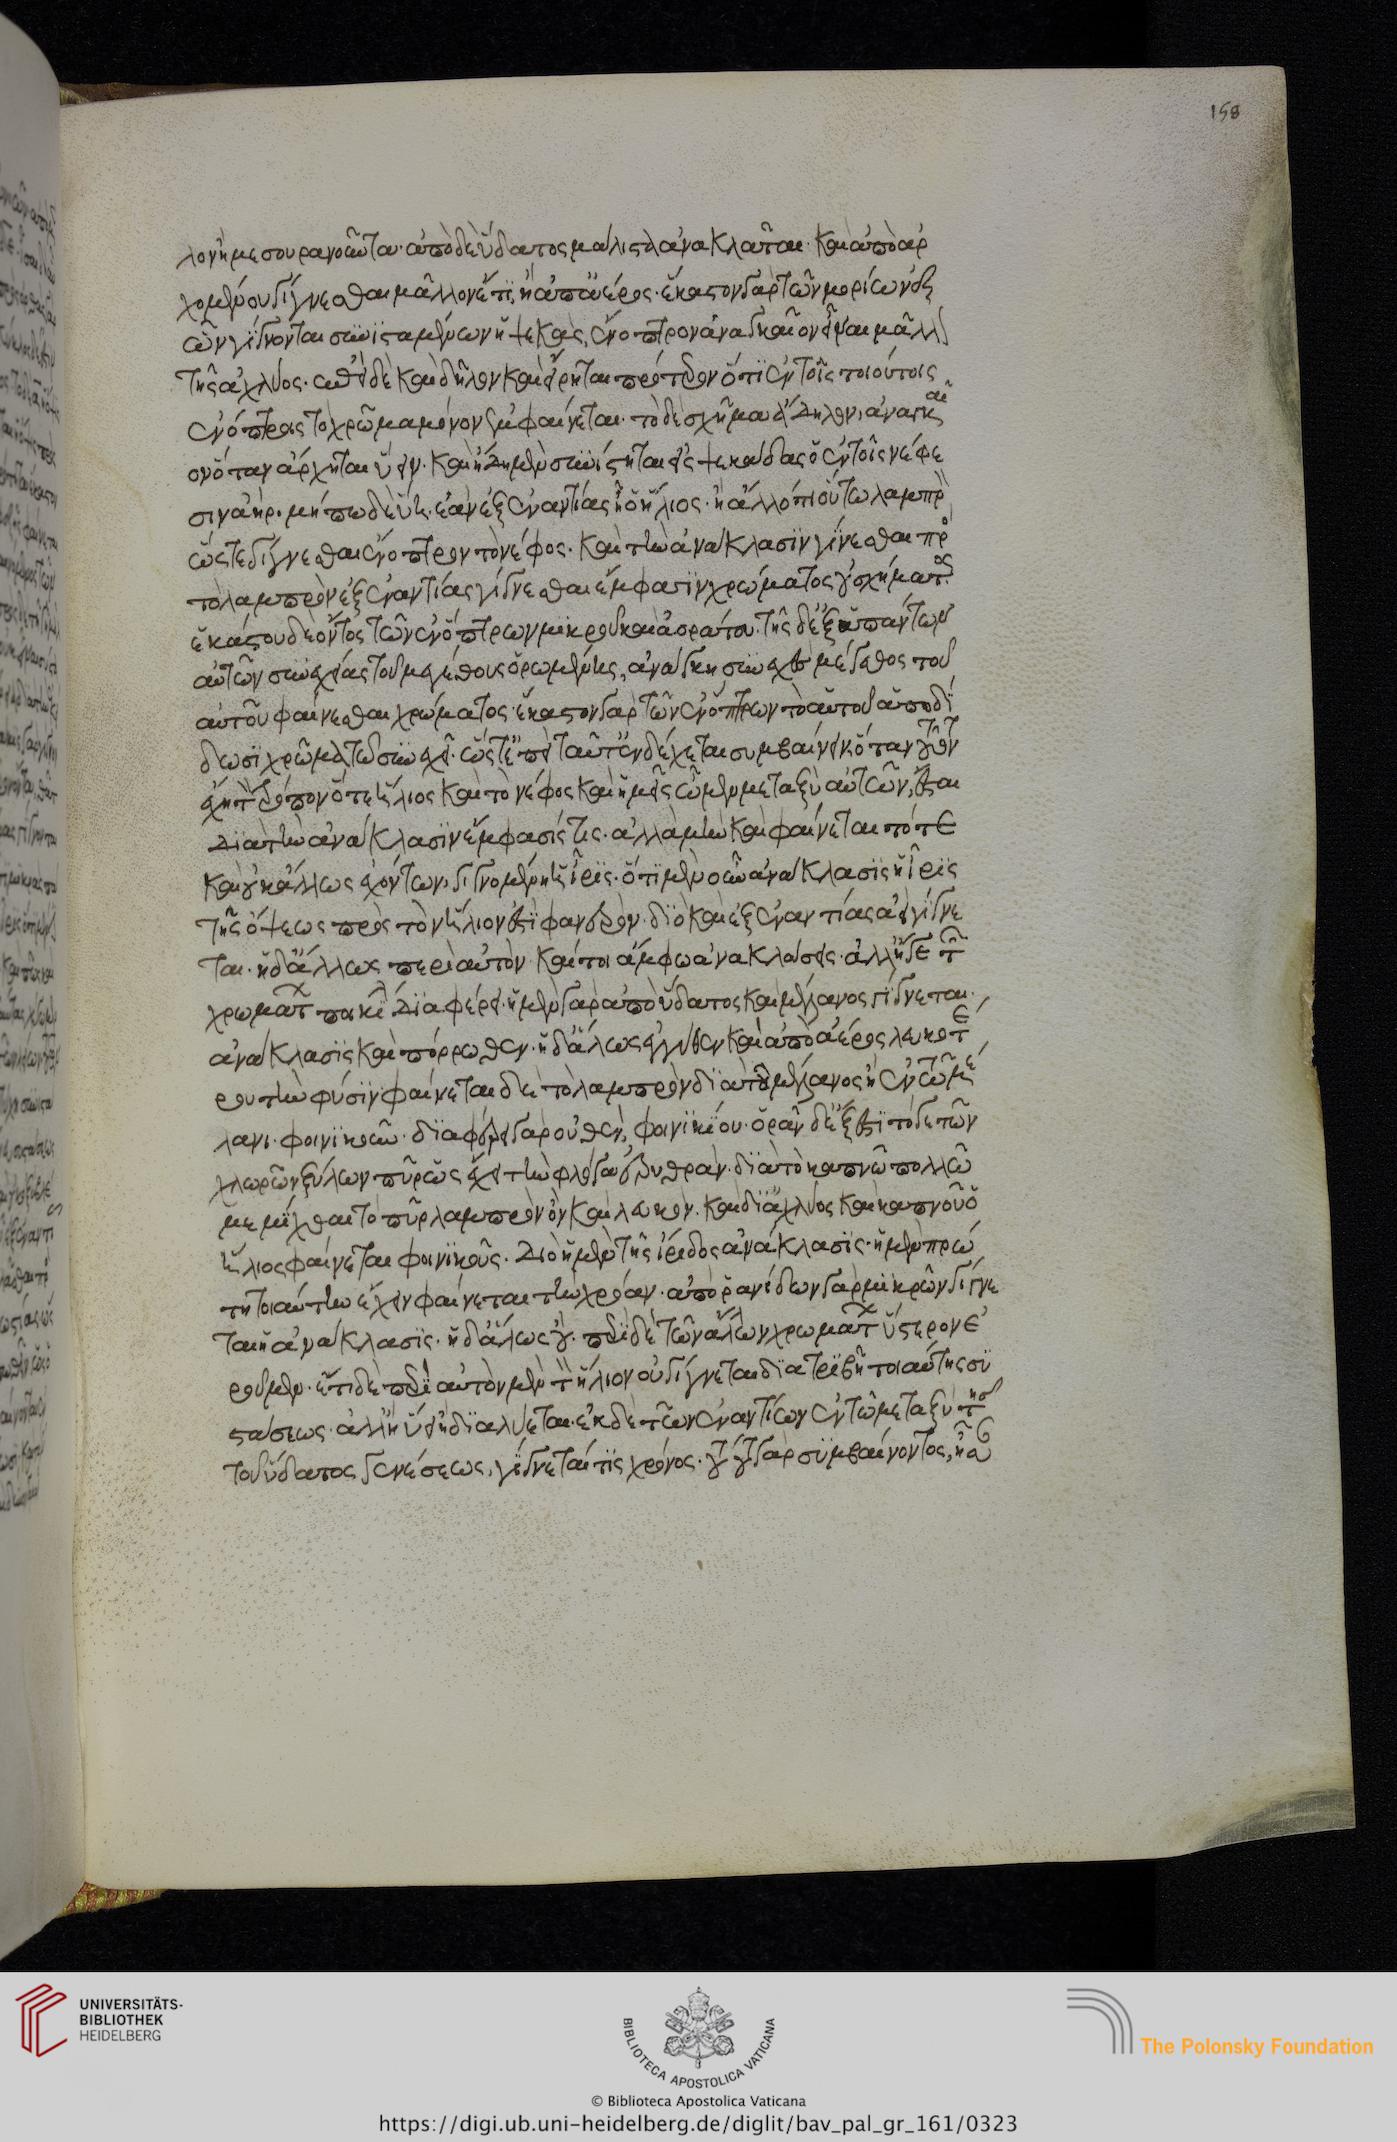 λον ἡμεσουρανοῦντα· ἀπὸ δὲ ὕδατος μάλιστα ἀνακλᾶται· καὶ ἀπὸ ἀρ
χομένου γίγνεσθαι μᾶλλον ἔτι, ἢ ἀπ' ἀέρος· ἕκαστον γὰρ τῶν μορίων ἐξ
ὧν γίγνονται συνισταμένων ἡ ψεκὰς, ἔνοπτρον ἀναγκαῖον εἶναι μᾶλλ
τῆς ἀχλύος· ἐπεὶ δὲ καὶ δῆλον καὶ εἴρηται πρότερον ὅτι ἐν τοῖς τοιούτοις
ἐνόπτροις τὸ χρῶμα μόνον ἐμφαίνεται· τὸ δὲ σχῆμα ἄδηλον, ἀναγκαῖ
ον ὅταν ἄρχηται ὕειν· καὶ ἤδη μὲν συνίστηται εἰς ψεκάδας ὁ ἐν τοῖς νέφε
σιν ἀήρ· μήπω δὲ ὕῃ· ἐὰν ἐξ ἐναντίας ᾖ ὁ ἥλιος· ἢ ἄλλό τι οὕτω λαμπρὸν
ὥστε γίγνεσθαι ἔνοπτρον τὸ νέφος· καὶ τὴν ἀνάκλασιν γίνεσθαι πρὸς
τὸ λαμπρὸν ἐξ ἐναντίας γίγνεσθαι ἔμφασιν χρώματος οὐ σχήματος
ἑκάστου δὲ ὄντος τῶν ἐνόπτρων μικροῦ καὶ ἀοράτου· τῆς δὲ ἐξ ἁπάντων
αὐτῶν συνεχείας τοῦ μεγέθους ὁρωμένης, ἀνάγκη συνεχὲς μέγεθος τοῦ
αὐτοῦ φαίνεσθαι χρώματος· ἕκαστον γὰρ τῶν ἐνόπτρων τὸ αὐτοῦ ἀποδί
δωσι χρῶμα τῷ συνεχεῖ· ὥστε ἐπεὶ ταῦτ' ἐνδέχεται συμβαίνειν ὅταν τοῦτον
ἔχῃ τὸν τρόπον ὅ τε ἥλιος καὶ τὸ νέφος καὶ ἡμεῖς ὦμεν μεταξὺ αὐτῶν, ἔσται
διὰ τὴν ἀνάκλασιν ἔμφασίς τις· ἀλλὰ μὴν καὶ φαίνεται τότε
καὶ οὐκ ἄλλως ἐχόντων, γιγνομένη ἡ ἶρις· ὅτι μὲν οὖν ἀνάκλασις ἡ ἶρις
τῆς ὄψεως πρὸς τὸν ἥλιον ἐστὶ φανερόν· διὸ καὶ ἐξ ἐναντίας ἀεὶ γίγνε
ται· ἡ δ' ἅλλως περὶ αὐτόν· καίτοι ἄμφω ἀνακλάσεις· ἀλλ' ἥ γε τῶν
χρωμάτων ποικιλ διαφέρει· ἡ μὲν γὰρ ἀπὸ ὕδατος καὶ μέλανος γίγνεται
ἀνάκλασις καὶ πόρρωθεν· ἡ δ' ἅλως ἐγγύθεν καὶ ἀπὸ ἀέρος λευκοτέ
ρου τὴν φύσιν φαίνεται δὲ τὸ λαμπρὸν διὰ τοῦ μέλανος ἢ ἐν τῷ μέ
λανι· φοινικοῦν· διαφέρει γὰρ οὐθὲν, φοινικίου· ὁρᾶν δὲ ἔξεστι τό γε τῶν
χλωρῶν ξύλων πῦρ ὡς ἔχει τὴν φλόγα ἐρυθράν· διὰ τὸ καπνῷ πολλῷ
μεμίχθαι τὸ πῦρ λαμπρὸν ὂν καὶ λευκόν· καὶ δι' ἀχλύος καὶ καπνοῦ ὁ
ἥλιος φαίνεται φοινικοῦς· διὸ ἡ μὲν τῆς ἴριδος ἀνάκλασις· ἡ μὲν πρώ
τη τοιαύτην ἔχειν φαίνεται τὴν χρόαν· ἀπὸ ῥανίδων γὰρ μικρῶν γίγνε
ται ἡ ἀνάκλασις· ἡ δ' ἅλως οὔ· περὶ δὲ τῶν ἄλλων χρωμάτων ὕστερον ἐ
ροῦμεν· ἔτι δὲ περὶ αὐτὸν μὲν τὸν ἥλιον οὐ γίγνεται διατριβὴ τοιαύτης συ
στάσεως· ἀλλ' ἢ ὕει ἢ διαλύεται· ἐκ δὲ τῶν ἐναντίων ἐν τῷ μεταξὺ τῆς
τοῦ ὕδατος γενέσεως, γίγνεταί τις χρόνος· τούτου γὰρ συμβαίνοντος, ἦσαν
158
UNIVERSITÄTS-
BIBLIOTHEK
HEIDELBERG
BIBLIOTECA APOSTOLICA VATICANA
© Biblioteca Apostolica Vaticana
The Polonsky Foundation
https://digi.ub.uni-heidelberg.de/diglit/bav_pal_gr_161/0323